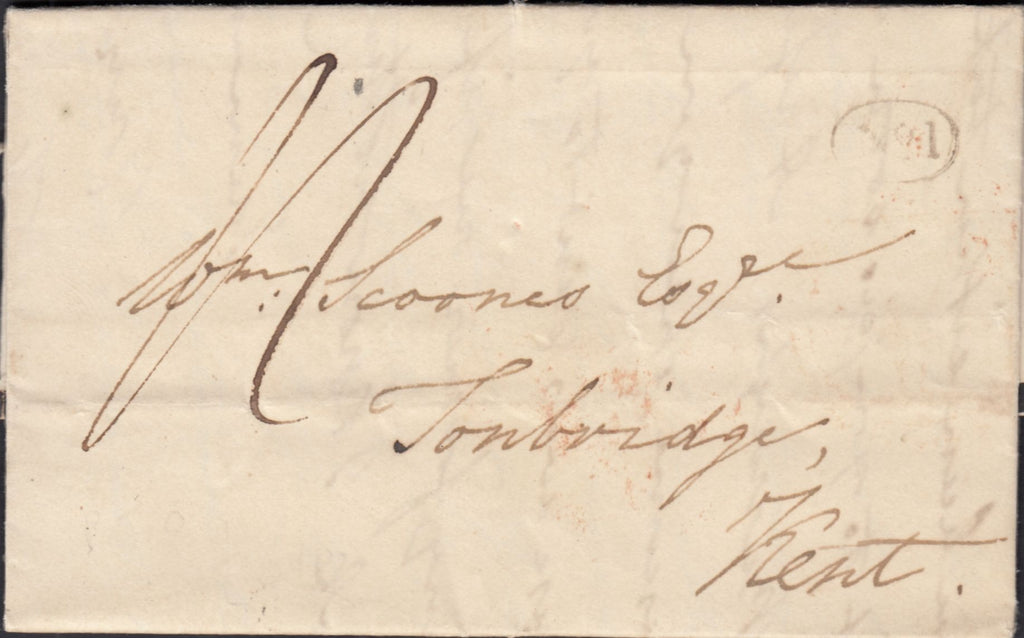 No 1
Wm. Scoones Esqre.
Tonbridge,
Kent.